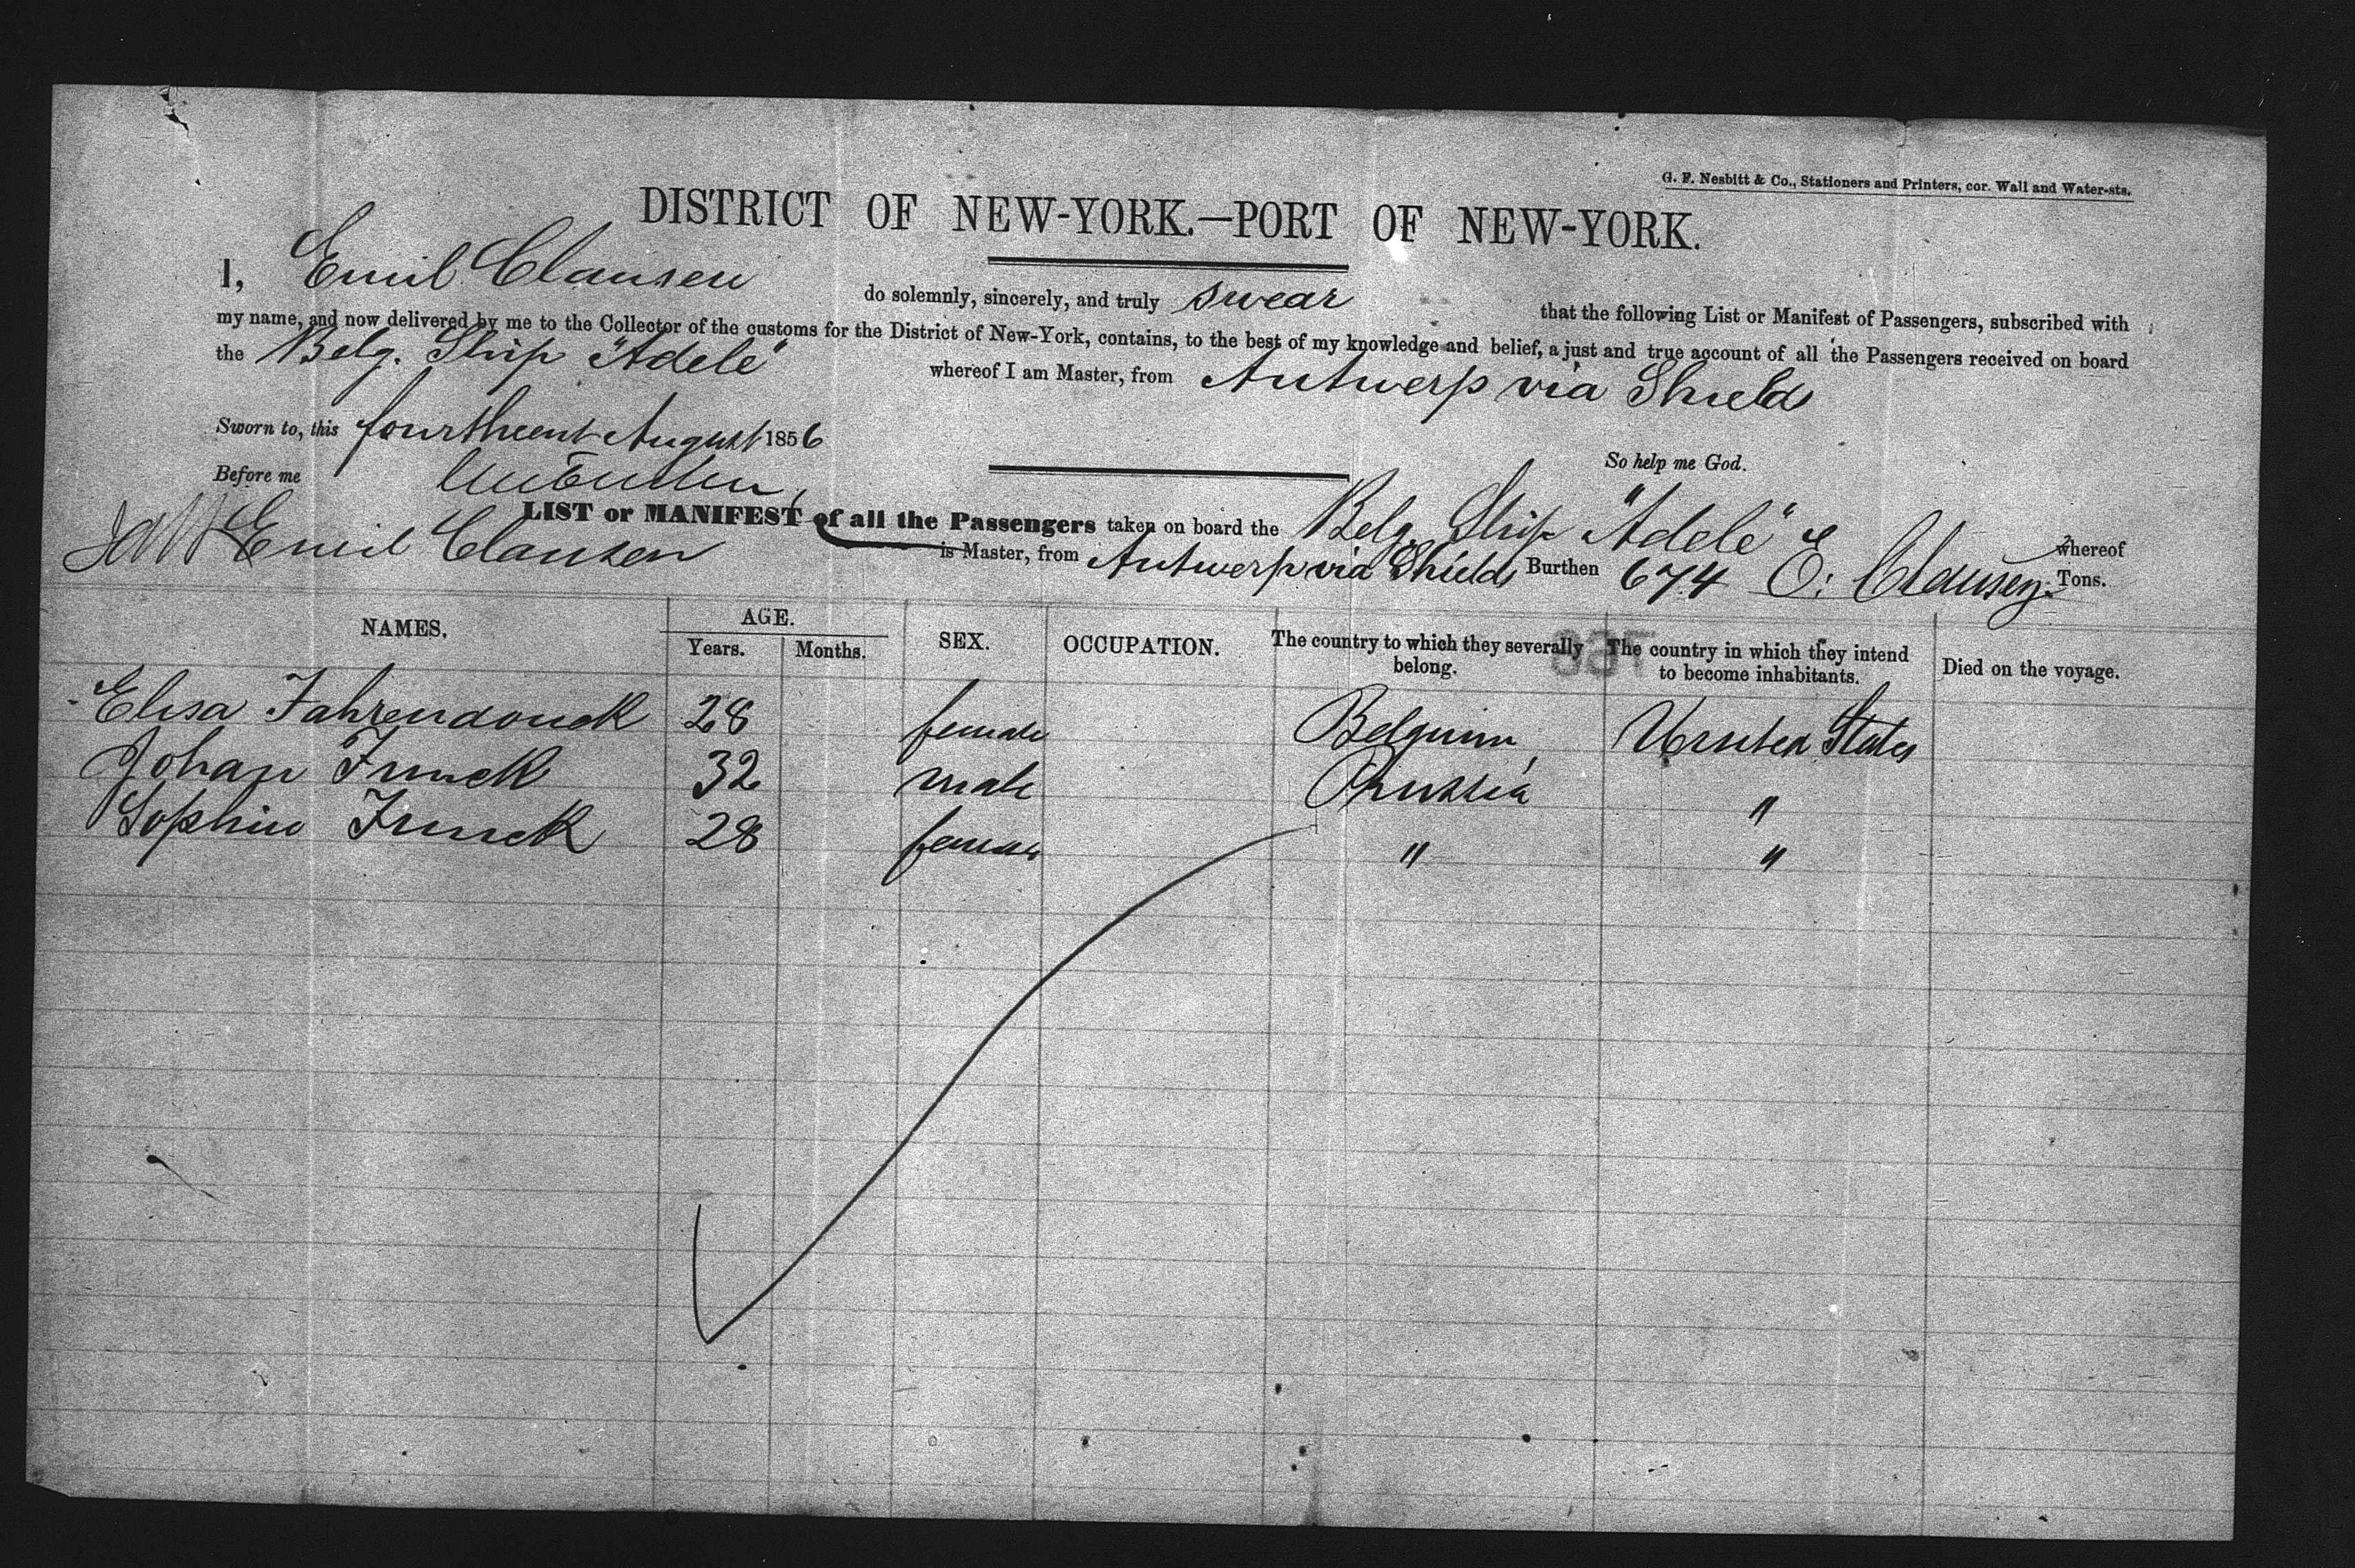 G. F. Nesbitt & Co., Stationers and Printers, cor. Wall and Water-sts.
DISTRICT OF NEW-YORK.—PORT OF NEW-YORK.
I, Emil Clausen do solemnly, sincerely, and truly swear that the following List or Manifest of Passengers, subscribed with
my name, and now delivered by me to the Collector of the customs for the District of New-York, contains, to the best of my knowledge and belief, a just and true account of all the Passengers received on board
the Belg. Ship "Adele" whereof I am Master, from Antwerp via Shields
Sworn to, this fourtheent August 1856
So help me God.
Before me
Emil Clausen
LIST or MANIFEST of all the Passengers taken on board the Belg. Ship "Adele" whereof
is Master, from Antwerp via Shields Burthen 674 E. Clausen Tons.
NAMES. AGE. Years. Months. SEX. OCCUPATION. The country to which they severally belong. The country in which they intend to become inhabitants. Died on the voyage.
Elisa Fahrendonck 28 female Belguim United States
Johan Funck 32 male Prussia "
Sophie Funck 28 female " "